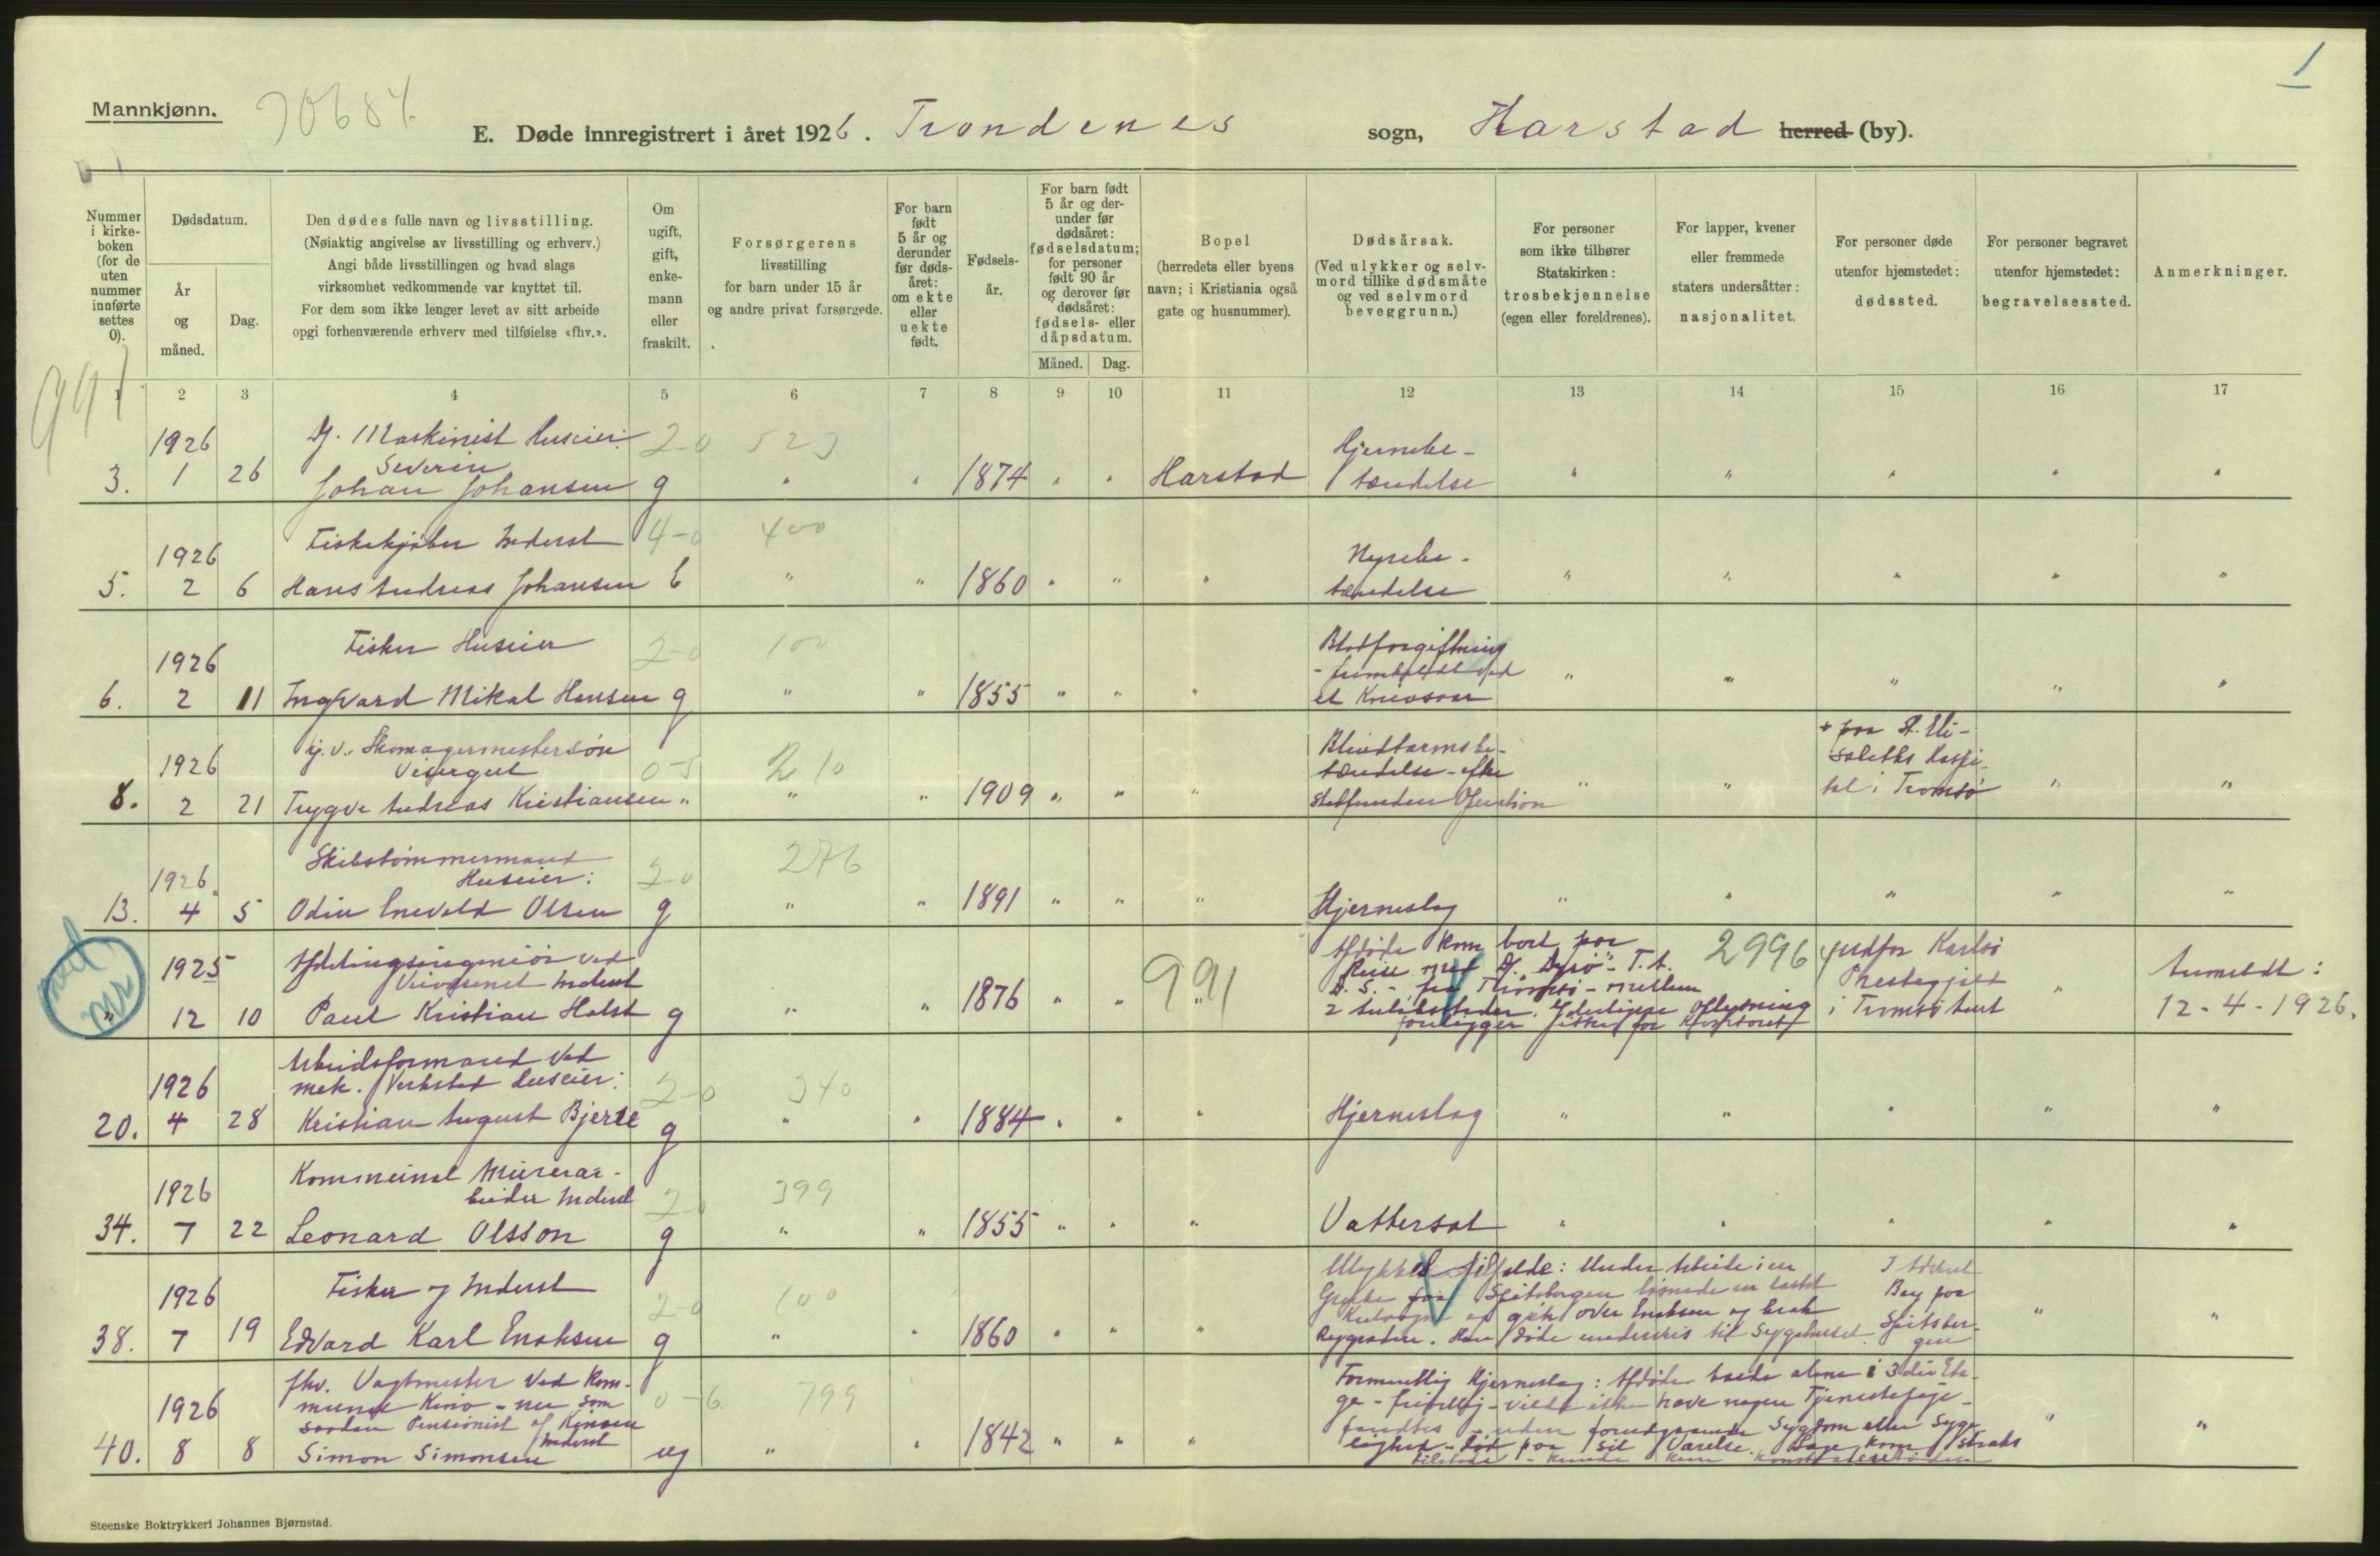 1
Mannkjønn.
E. Døde innregistrert i året 1926. Trondenes sogn, Harstad herred (by).
Nummer i kirkeboken (for de uten nummer innførte settes 0).
Dødsdatum.
År og måned.
Dag.
Den dødes fulle navn og livsstilling.
(Nøiaktig angivelse av livsstilling og erhverv.)
Angi både livsstillingen og hvad slags
virksomhet vedkommende var knyttet til.
For dem som ikke lenger levet av sitt arbeide
opgi forhenværende erhverv med tilføielse «fhv.».
Om ugift, gift, enkemann eller fraskilt.
Forsørgerens livsstilling for barn under 15 år og andre privat forsørgede.
For barn født 5 år og derunder før dødsåret: om ekte eller uekte født.
Fødselsår.
For barn født 5 år og derunder før dødsåret: fødselsdatum; for personer født 90 år og derover før dødsåret: fødsels- eller dåpsdatum.
Måned. Dag.
Bopel (herredets eller byens navn; i Kristiania også gate og husnummer).
Dødsårsak. (Ved ulykker og selvmord tillike dødsmåte og ved selvmord beveggrunn.)
For personer som ikke tilhører Statskirken: trosbekjennelse (egen eller foreldrenes).
For lapper, kvener eller fremmede staters undersåtter: nasjonalitet.
For personer døde utenfor hjemstedet: dødssted.
For personer begravet utenfor hjemstedet: begravelsessted.
Anmerkninger.
991
1 2 3 4 5 6 7 8 9 10 11 12 13 14 15 16 17
1926 Maskinist Huseier: 2-0 523 Hjernebe-
Severin
3. 1 26 Johan Johansen g " " 1874 " " Harstad tændelse " " " " "
1926 Fiskekjøber Inderst 4-0 400 Nyrebe-
5. 2 6 Hans Andreas Johansen E " " 1860 " " " tændelse " " " " "
1926 Fisker Huseier 2-0 100 Blodforgiftning
6. 2 11 Ingvard Mikal Hansen g " " 1855 " " " et Knivsaar " " " " "
1926 Skomagermestersøn Visergut 0-5 210 Blindtarmsbe- + paa St. Eli-
tændelse - efter sabeths Hospi-
8. 2 21 Trygve Andreas Kristiansen " " " 1909 " " " stedfunden Operation " " tal i Tromsø " "
1926 Skibstømmermand Huseier: 2-0 276
13. 4 5 Odin Enevold Olsen g " " 1891 " " " Hjerneslag " " " " "
1925 Afdelingsingeniør ved Afdøde kom bort paa 2996 udfor Karlsø
Veivæsenet Inderst Reise med D/S Dyrø - T. A. Prestegjeld Anmeldt:
D. S. - fra Tromsø - mellem
" 12 10 Paul Kristian Holst g " " 1876 " " 991 2 Anløbssteder. Yderligere Oplysning i Tromsø Amt " 12-4-1926.
foreligger ikke for
Arbeidsformand ved
1926 mek. Verksted Huseier: 2-0 340
20. 4 28 Kristian August Bjerke g " " 1884 " " " Hjerneslag " " " " "
Kommunal Murerar-
1926 beider Inderst 2-0 399
34. 7 22 Leonard Olsson g " " 1855 " " " Vattersot " " " " "
Ulykkestilfælde: Under Arbeide i en I Advent
1926 Fisker og Inderst 2-0 100 Grube paa Spitsbergen løsnede en lastet Bay paa
gik over Enoksen og brak Spitsber-
38. 7 19 Edvard Karl Enoksen g " " 1860 " " " Rygraden. Han døde underveis til Sygehuset. gen " "
fhv. Vagtmester ved Kom- Formentlig Hjerneslag: Afdøde boede alene i 3die Eta-
1926 munal Kino - nu som 0-6 799 ge - frivillig - vilde ikke have nogen Tjenestepige -
saadan Pensionist af Kinoen fandtes - uden foregaaende Sygdom eller Syge-
Inderst
40. 8 8 Simon Simonsen ug " " 1842 " " " lighed - død paa sit Værelse. Læge kom straks " "
tilstede - kunde kun konstatere Døden
Steenske Boktrykkeri Johannes Bjørnstad.